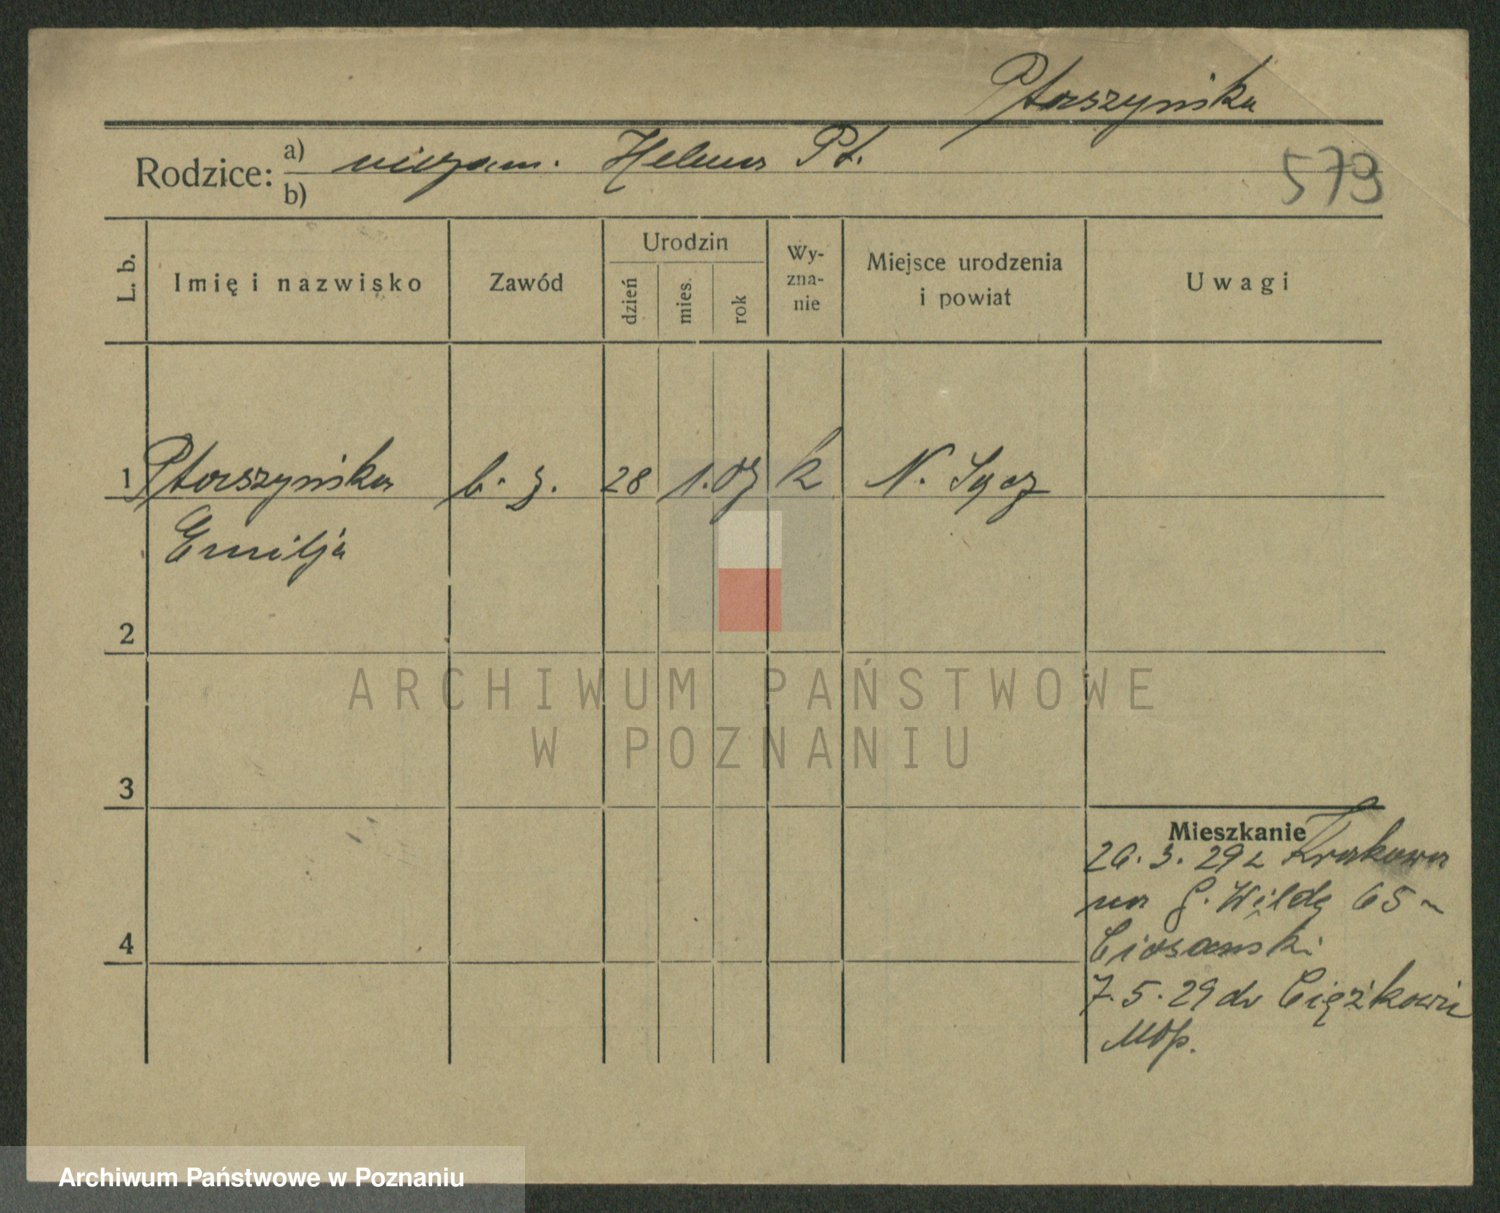 Ptaszyńska
Rodzice: a) niezam. Helena Pt.
b)
573
L. b.
Imię i nazwisko
Zawód
Urodzin
dzień
mies.
rok
Wy-
zna-
nie
Miejsce urodzenia
i powiat
Uwagi
1 Ptaszyńska b. z. 28 1. 07 k N. Sącz
Emilja
2
3
4
Mieszkanie
20. 3. 29 z Krakowa
na G. Wildę 65 ~
Ciosański
7. 5. 29 do Ciężkowic
Młp.
ARCHIWUM PAŃSTWOWE
W POZNANIU
Archiwum Państwowe w Poznaniu